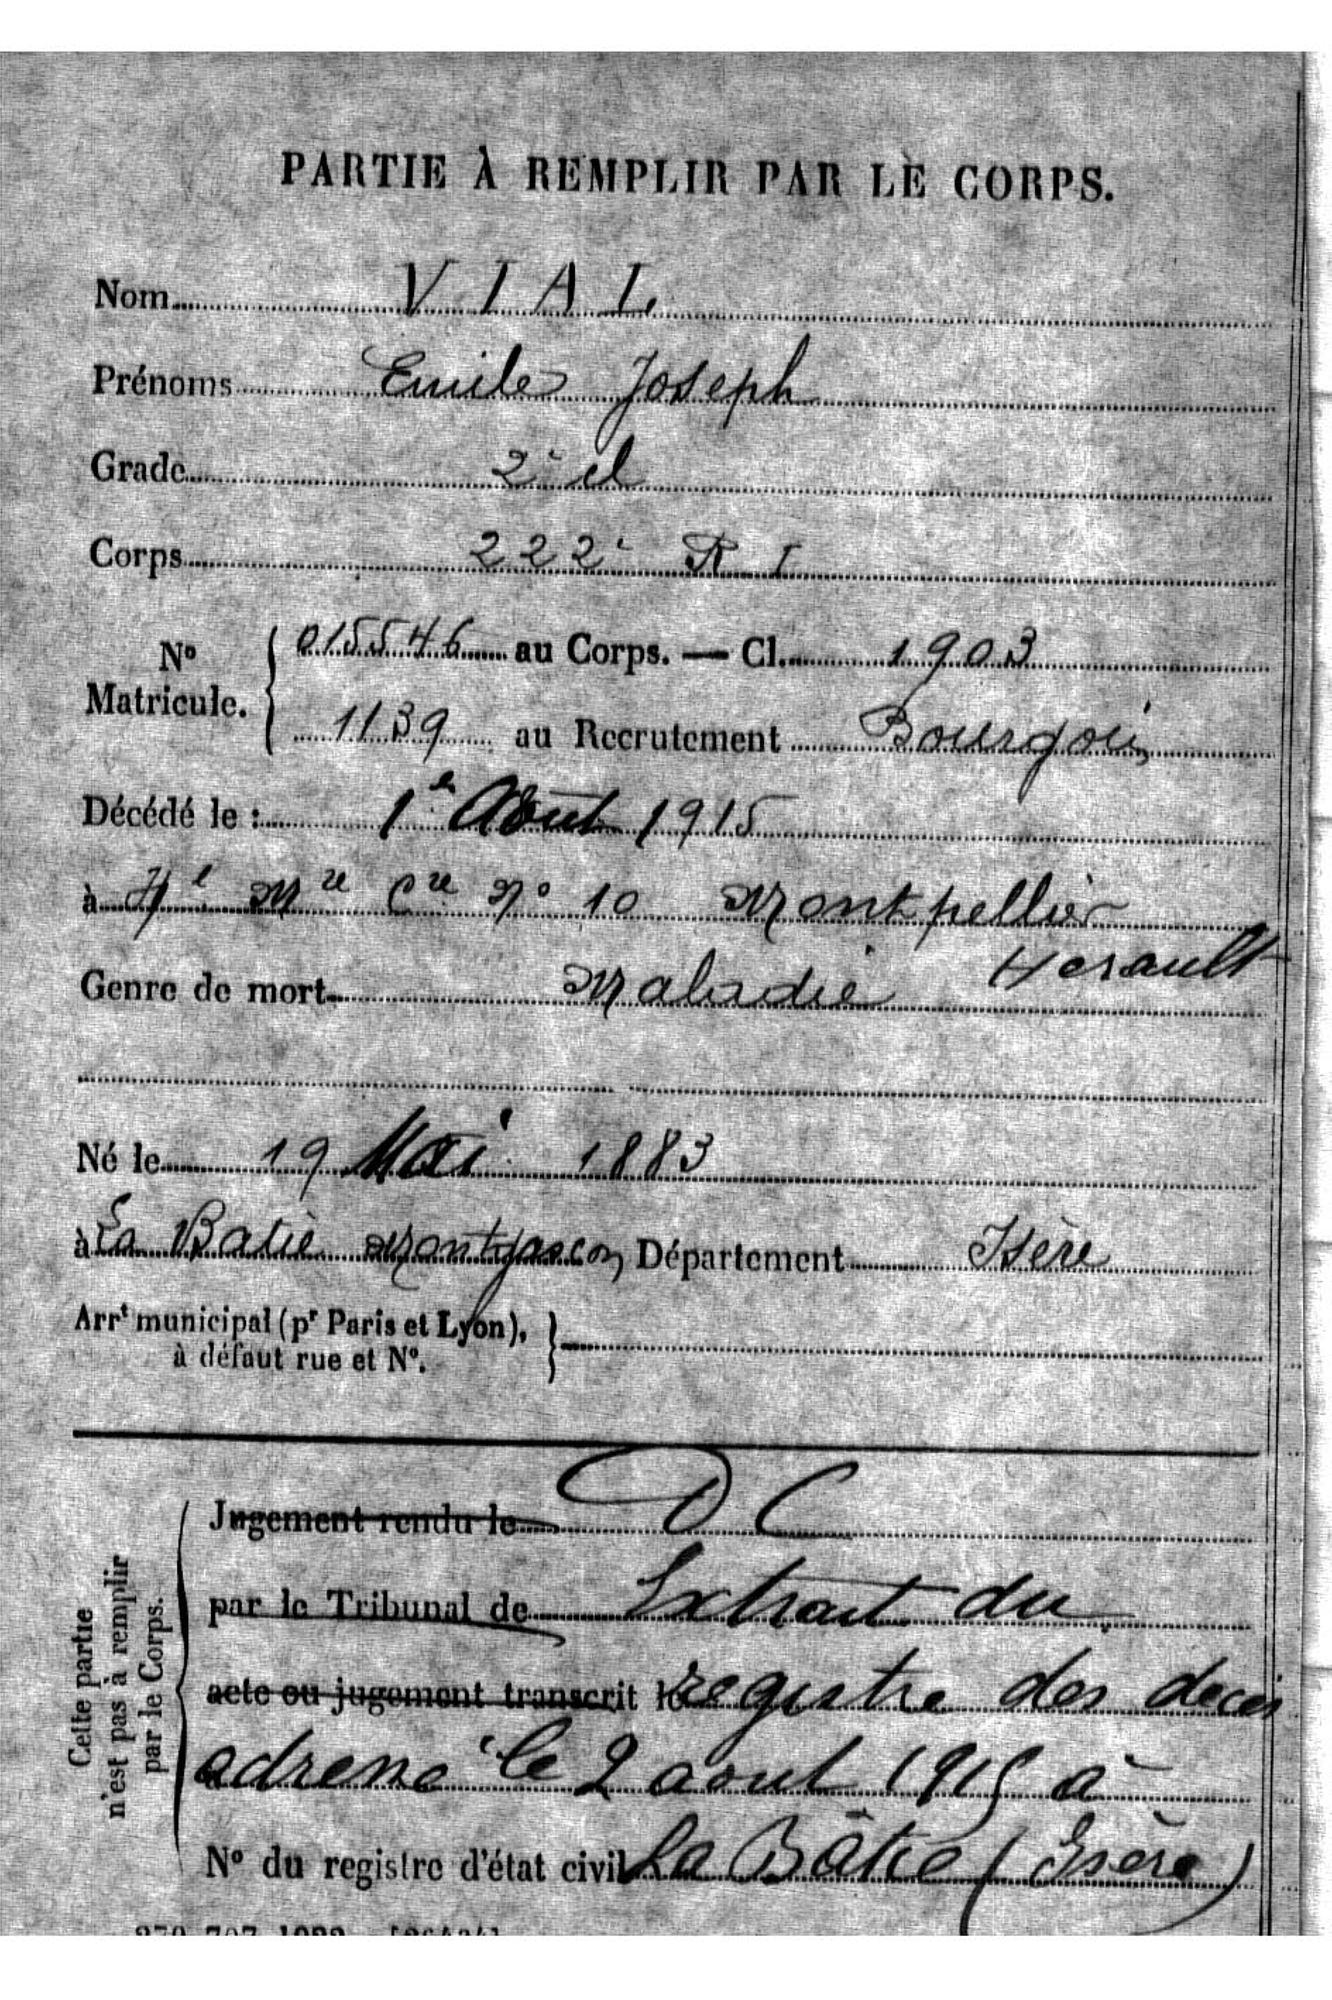 PARTIE À REMPLIR PAR LE CORPS.
Nom VIAL
Prénoms Emile Joseph
Grade 2e cl
Corps 222e R I
No Matricule. { 015546 au Corps. — Cl. 1903
1139 au Recrutement Bourgoin
Décédé le : 1er Août 1915
à Hl Mre Cre No 10 Montpellier
Herault
Genre de mort Maladie
Né le 19 Mai 1883
à La Batie Montgascon Département Isère
Arrt municipal (pr Paris et Lyon),
à défaut rue et No.
Cette partie
n'est pas à remplir
par le Corps.
Jugement rendu le D C
par le Tribunal de Extrait du
acte ou jugement transcrit le registre des deces
adressé le 2 aout 1915 à
No du registre d'état civil La Bâtie (Isère)